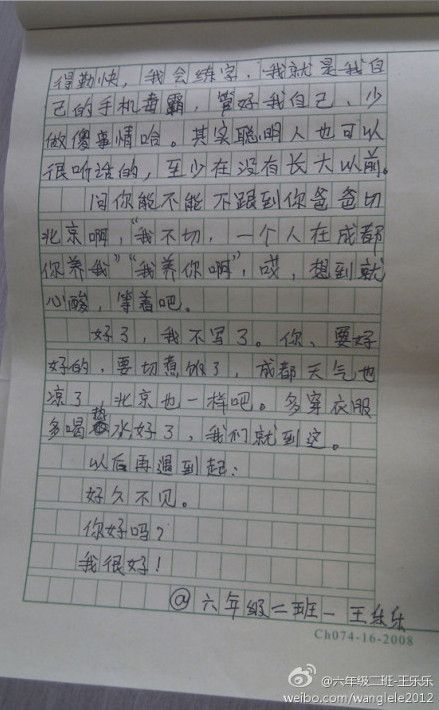 得勤快，我会练字，我就是我自
己的手机毒霸，管好我自己，少
做傻事情哈。其实聪明人也可以
很听话的，至少在没有长大以前。
问你能不能不跟到你爸爸切
北京啊，“我不切，一个人在成都
你养我”“我养你啊”，哎，想到就
心酸，等着吧。
好了，我不写了。你、要好
好的，要切煮饭了，成都天气也
凉了，北京也一样吧。多穿衣服
多喝热水好了，我们就到这。
以后再遇到起：
好久不见。
你好吗？
我很好！
@六年级二班-王乐乐
Ch074-16-2008
@六年级二班-王乐乐
weibo.com/wanglele2012